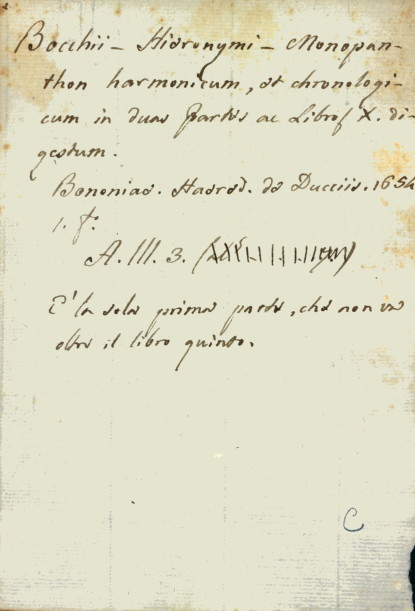 Bocchii - Hieronymi - Monopan-
thon harmonicum, et chronologi-
cum in duas partes ac Libros X. di-
gestum.
Bononiae. Haered. de Ducciis. 1654
1. f.º
A. III. 3.
E' la sola prima parte, che non va
oltre il libro quinto.
C